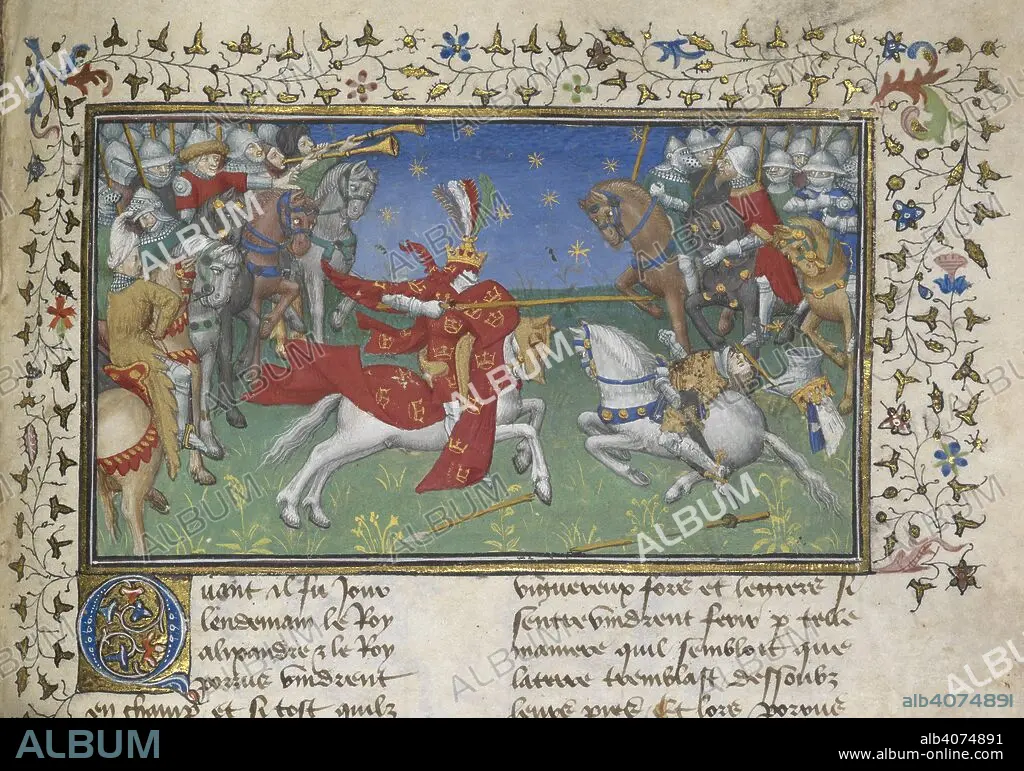 Quant il fu Jour
lendemain le Roy
alixandre z le Roy
porrus vindrent
en champ et si tost quilz
viguereux fors et legiers si
sentrevindrent ferir p telle
maniere quil sembloit que
la terre tremblast dessoubz
leurs piez Et lors porrus
ALBUM
alb4074891
ALBUM
alb4074891
www.album-online.com